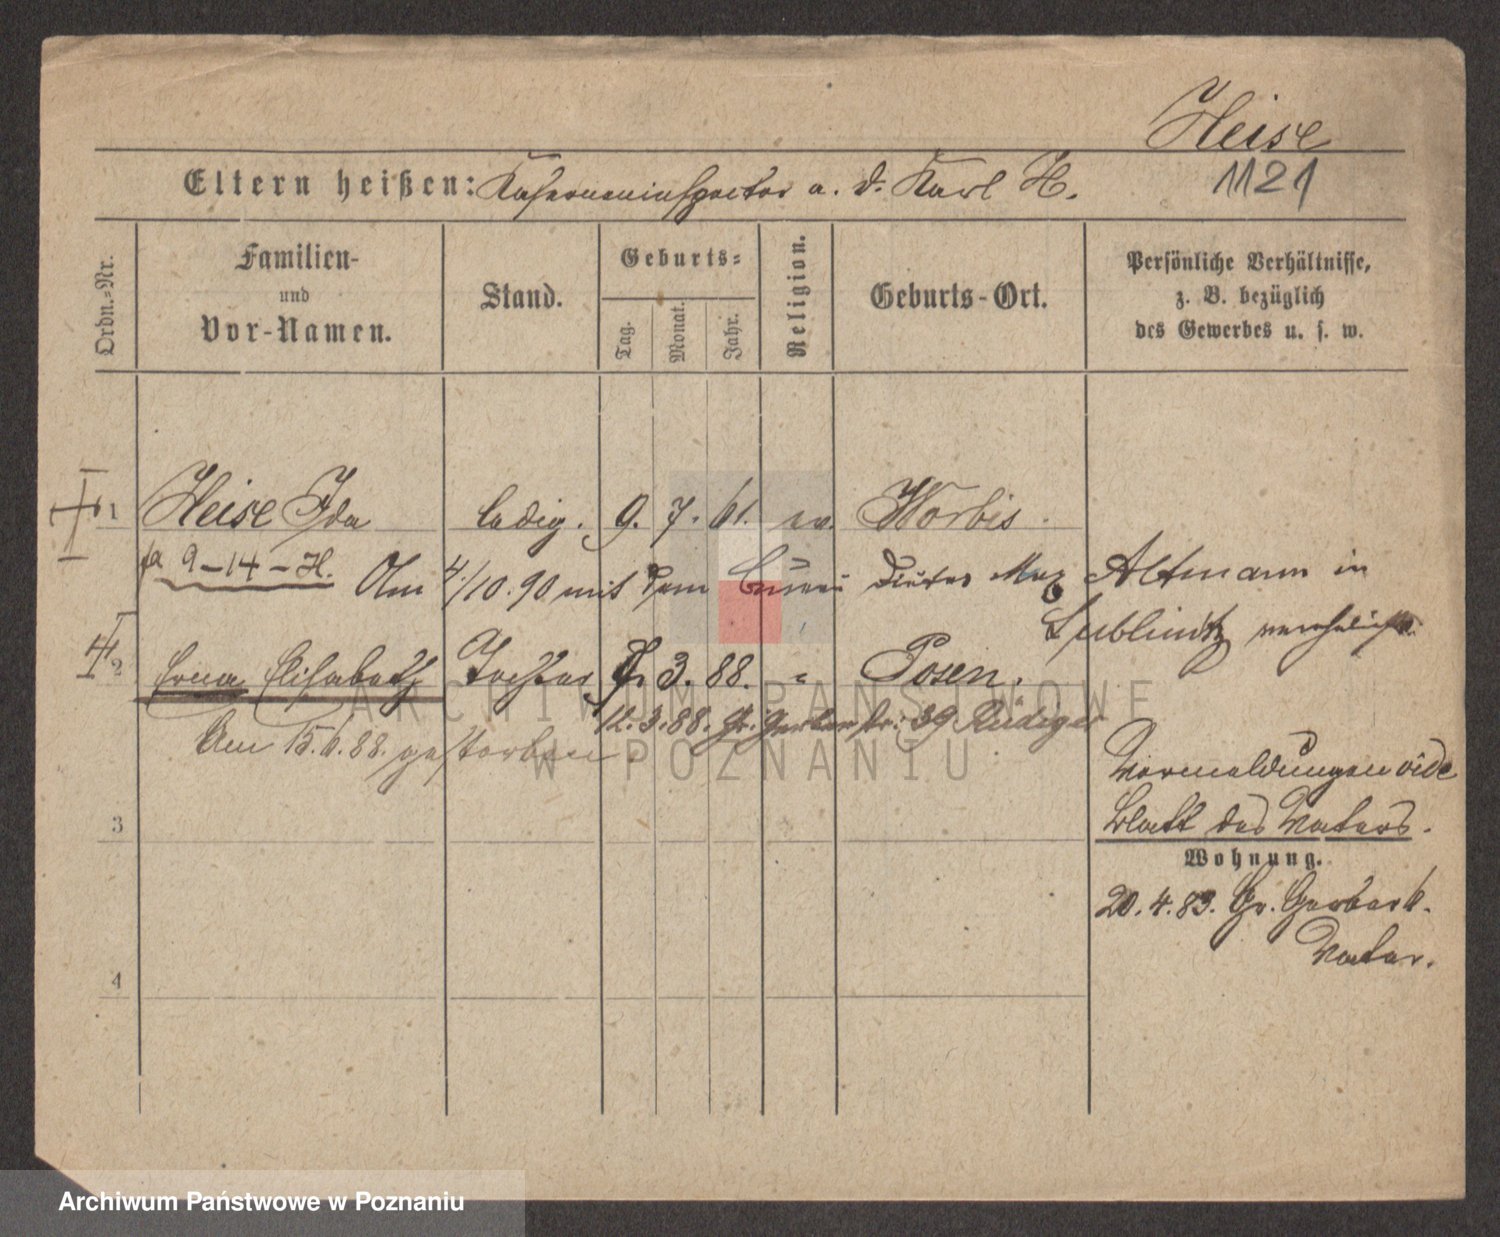 Heise
Eltern heißen: Kaserneninspector a. D. Karl H.
1121
Ordn.-Nr.
Familien-
und
Vor-Namen.
Stand.
Geburts-
Tag.
Monat.
Jahr.
Religion.
Geburts-Ort.
Persönliche Verhältnisse,
z. B. bezüglich
des Gewerbes u. s. w.
1 Heise Ida ledig. 9. 7. 61. ev. Worbis.
9-14-H.
Am 4./10.90 mit dem Max Altmann in
Lublinitz verehelicht.
2 Erna Elisabeth Tochter 3. 88. " Posen.
12.3.88. Gr. Gerberstr. 39 Rüdiger
Am 15.6.88. gestorben.
Vormeldungen vide
Blatt des Vaters.
3
Wohnung.
20.4.83. Gr. Gerberst.
Vater.
4
ARCHIWUM PAŃSTWOWE
W POZNANIU
Archiwum Państwowe w Poznaniu